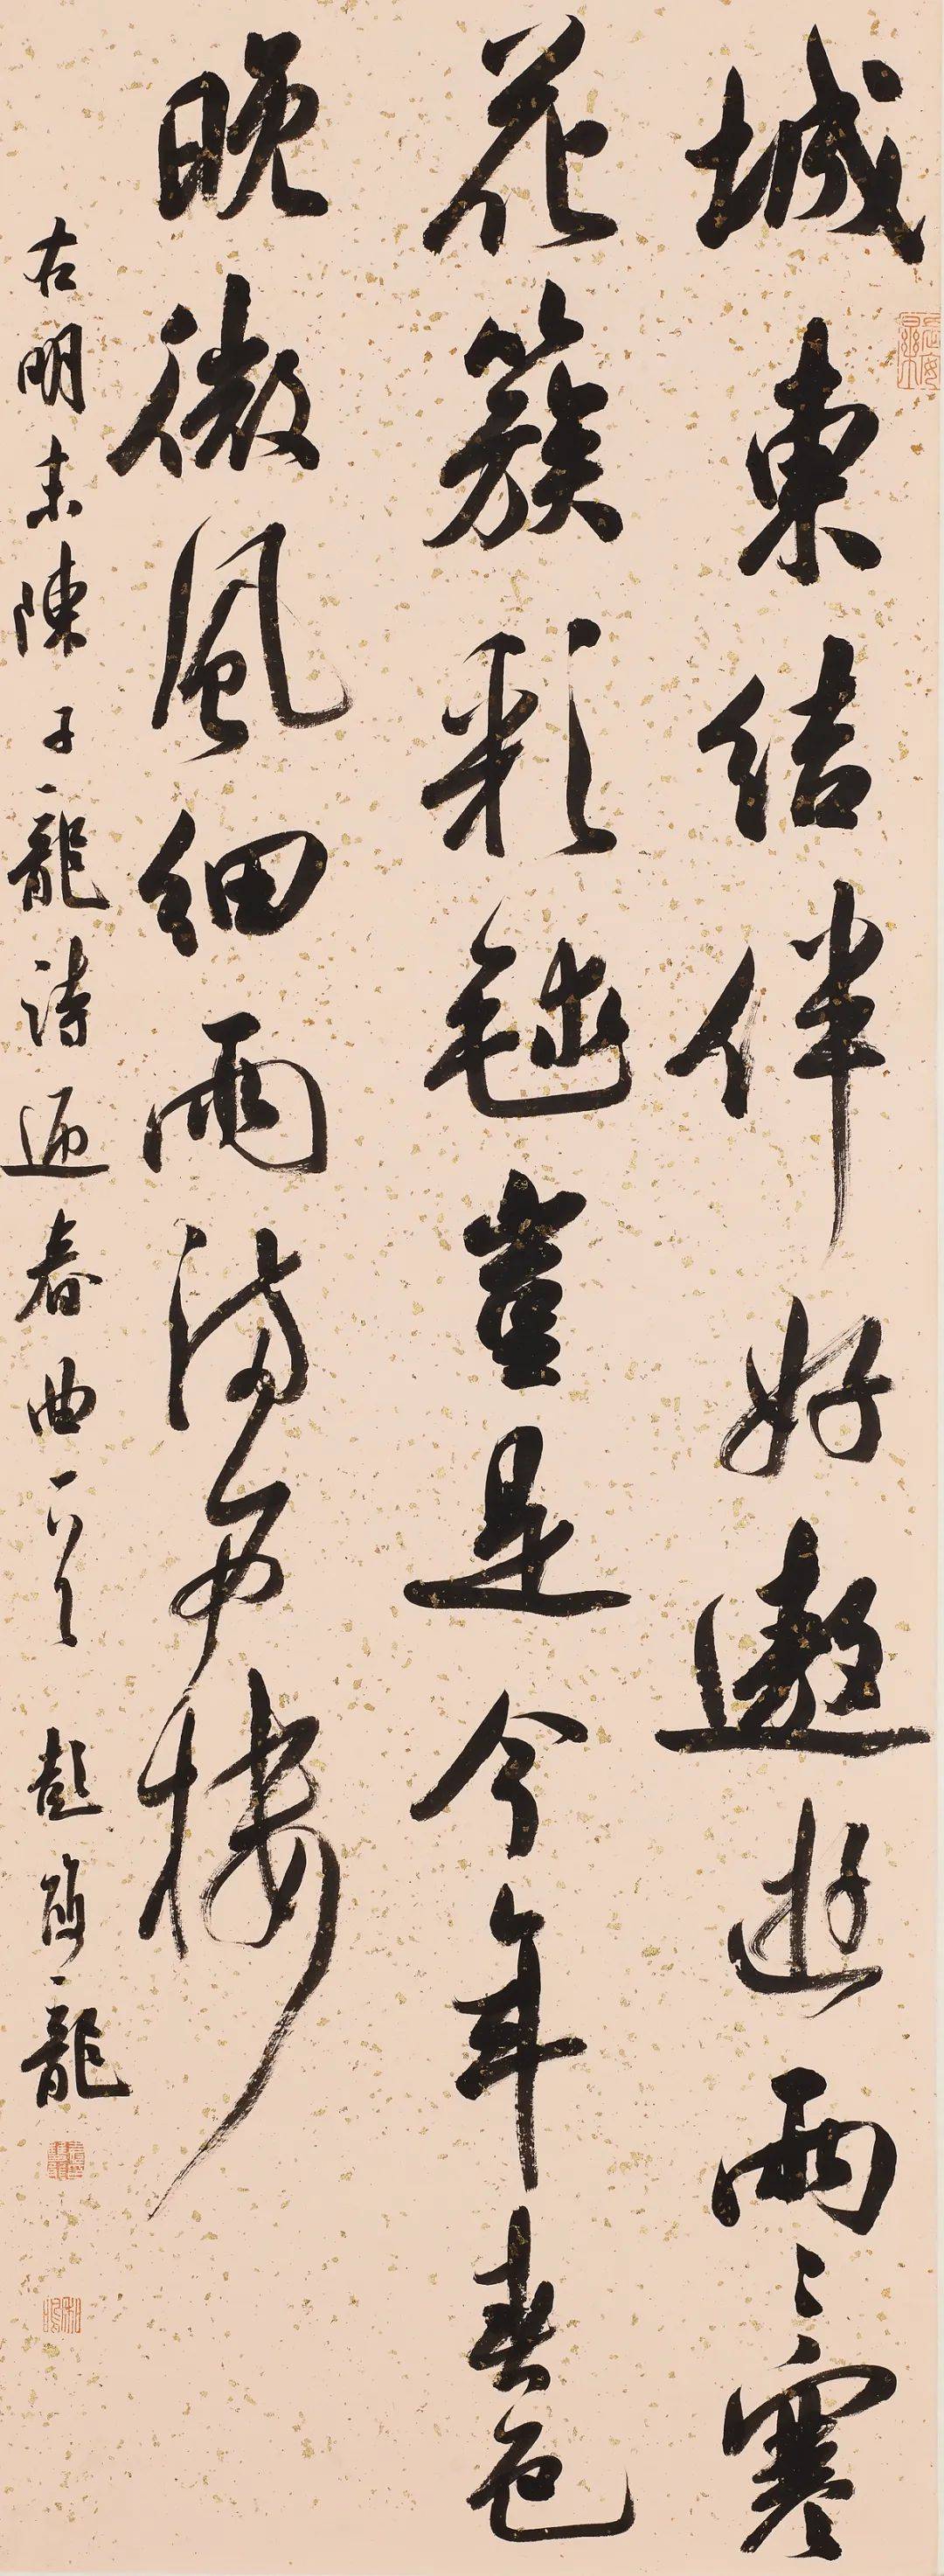 城東結伴好遨遊兩〻寒
花簇彩毬豈是今年春色
晚微風細雨滿樓
右明末陳子龍詩迎春曲一首 彭龍